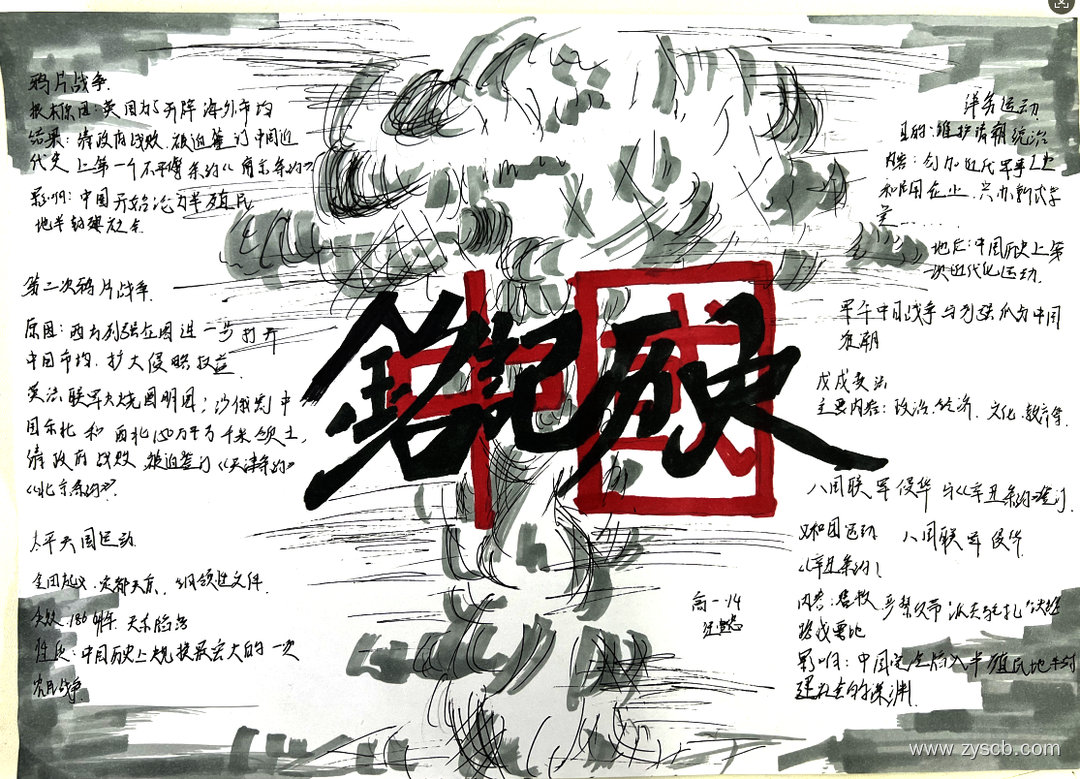 鸦片战争.
根本原因:英国为了开辟海外市场
结果:清政府战败.被迫签订中国近
代史上第一个不平等条约《南京条约》
影响:中国开始沦为半殖民
地半封建社会.
第二次鸦片战争.
原因:西方列强企图进一步打开
中国市场,扩大侵略权益.
英法联军火烧圆明园;沙俄割中
国东北和西北150万平方千米领土,
清政府战败 被迫签订《天津条约》
《北京条约》.
太平天国运动
金田起义.定都天京. 纲领性文件.
失败.1864年.天京陷落
性质:中国历史上规模最宏大的一次
农民战争
中国
銘記历史
洋务运动
目的:维护清朝统治
内容:创办近代军事工业
和民用企业.兴办新式学
堂......
地位:中国历史上第
一次近代化运动.
甲午中日战争与列强瓜分中国
狂潮
戊戌变法
主要内容:政治.经济.文化.教育等.
八国联军侵华与《辛丑条约》签订.
义和团运动 八国联军侵华
《辛丑条约》
内容:赔款 严禁 派兵驻扎 铁路
战略要地
影响:中国完全陷入半殖民地半封
建社会的深渊.
高一14
www.zyscb.com